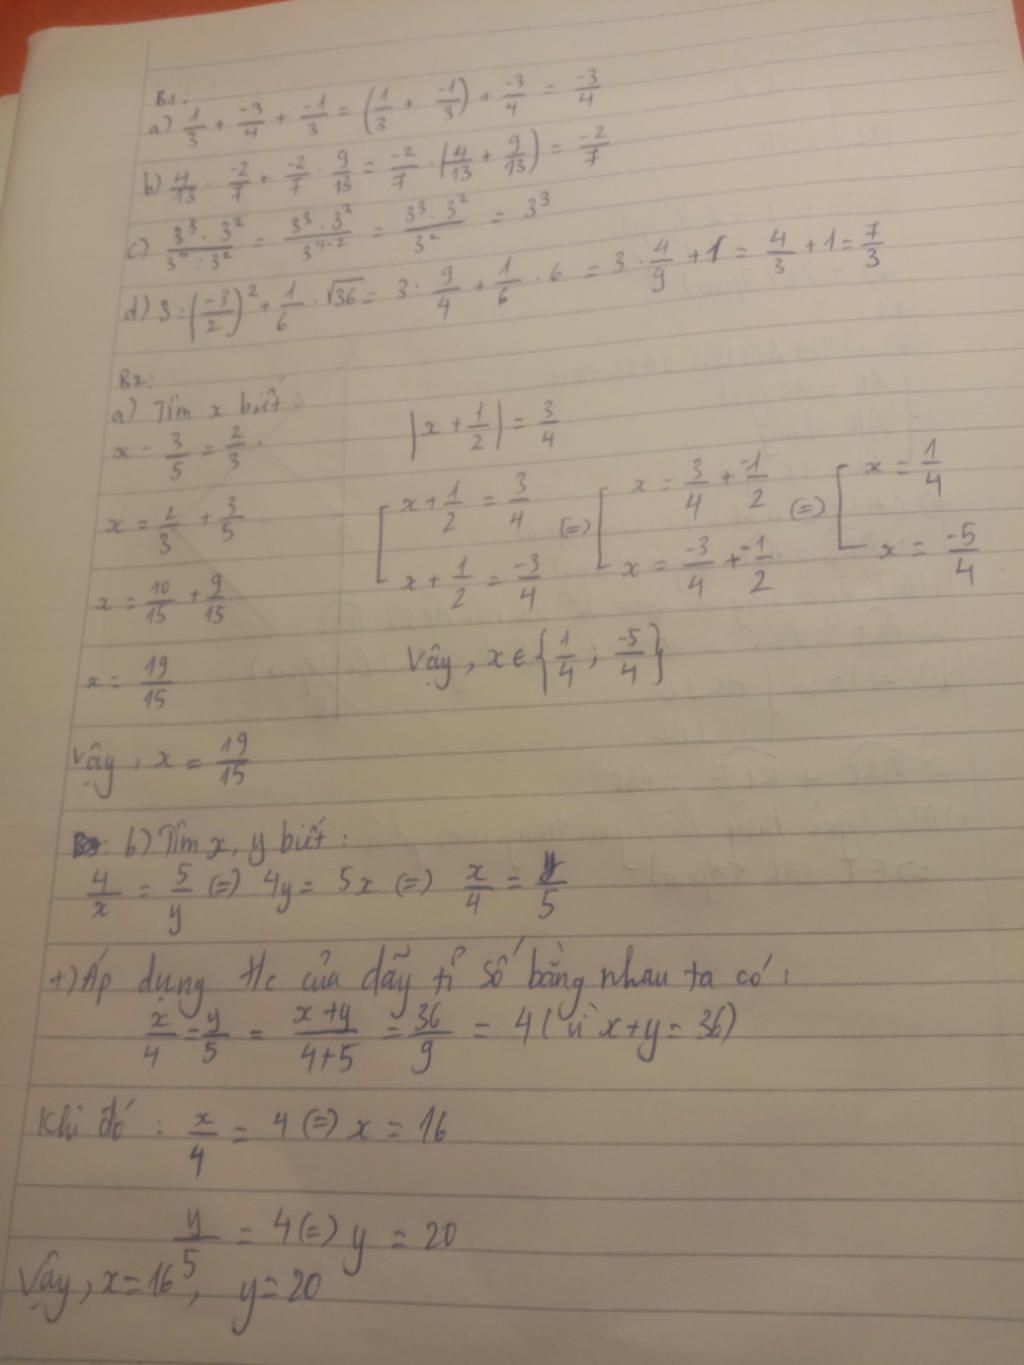 B1:
a) 1/3 + -3/4 + -1/3 = (1/3 + -1/3) + -3/4 = -3/4
b) 4/13 . -2/7 + -2/7 . 9/13 = -2/7 . (4/13 + 9/13) = -2/7
c) 3^3 . 3^2 / 3^4 : 3^2 = 3^3 . 3^2 / 3^4-2 = 3^3 . 3^2 / 3^2 = 3^3
d) 3 : (-3/2)^2 + 1/6 . √36 = 3 : 9/4 + 1/6 . 6 = 3 . 4/9 + 1 = 4/3 + 1 = 7/3
B2:
a) Tìm x biết :
x - 3/5 = 2/3 .
x = 2/3 + 3/5
x = 10/15 + 9/15
x = 19/15
Vậy , x = 19/15
|x + 1/2| = 3/4
[ x + 1/2 = 3/4 (=) [ x = 3/4 + -1/2 (=) [ x = 1/4
x + 1/2 = -3/4 x = -3/4 + -1/2 x = -5/4
Vậy , x ∈ {1/4 ; -5/4}
b) Tìm x, y biết :
4/x = 5/y (=) 4y = 5x (=) x/4 = y/5
+) Áp dụng t/c của dãy tỉ số bằng nhau ta có :
x/4 = y/5 = x+y/4+5 = 36/9 = 4 ( vì x+y = 36)
Khi đó : x/4 = 4 (=) x = 16
y/5 = 4 (=) y = 20
Vậy , x = 16 , y = 20